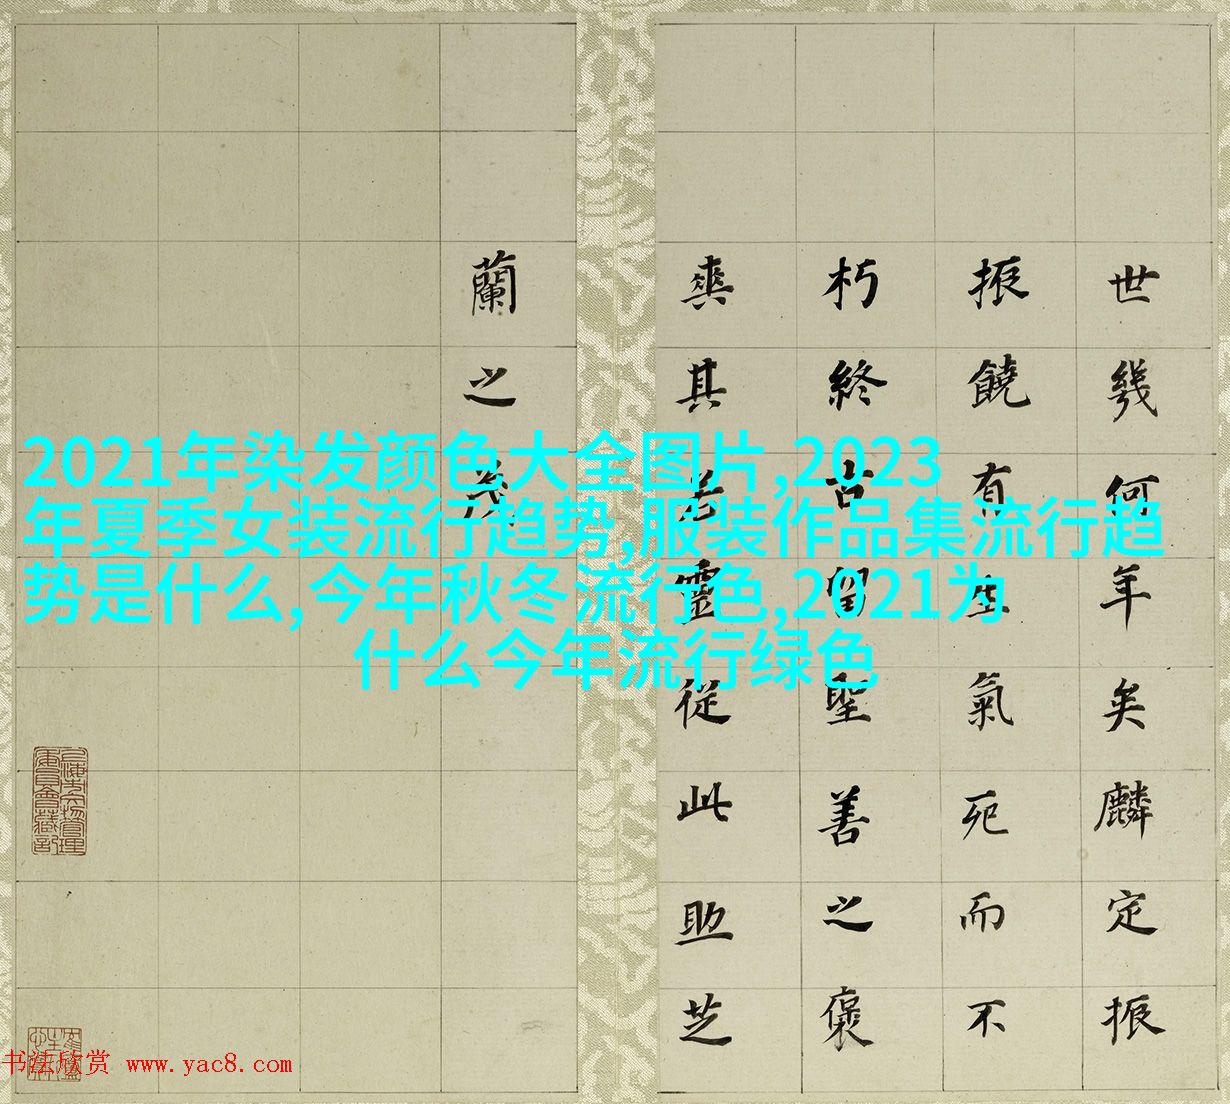 2021年染发颜色大全图片,2023
年夏季女装流行趋势,服装作品集流行趋
势是什么,今年秋冬流行色,2021为
什么今年流行绿色
世幾何年矣麟定振
振饒有生氣死而不
朽終古留聖善之褒
其靈從此助芝
蘭之茂
书法欣赏 www.yac8.com